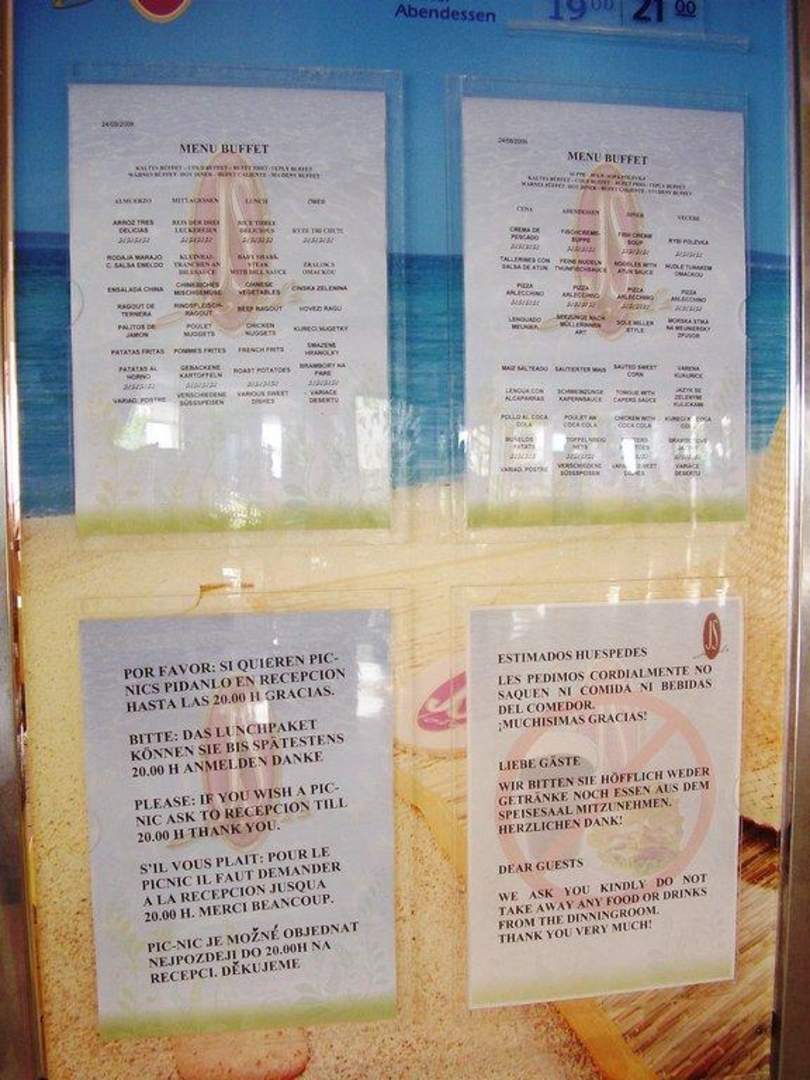 Abendessen 19 00 21 00
24/09/2009
MENU BUFFET
KALTES BUFFET - COLD BUFFET - BUFET FRIO - TEPLY BUFFET
WARMES BUFFET- HOT DINER - BUFET CALIENTE - STUDENY BUFFET
ALMUERZO MITTAGESSEN LUNCH
ARROZ TRES REIS DER DREI RICE THREE
DELICIAS LECKEREIEN DELICIOUS RYZE TRI CHUTI
RODAJA MARAJO KLEINHAI- BABY SHARK
C. SALSA ENELDO TRANCHEN AN STEAK ZRALOK S
DILLSAUCE WITH DILL SAUCE OMACKOU
ENSALADA CHINA CHINESICHES CHINESE CINSKA ZELENINA
MISCHGEMÜSE VEGETABLES
RAGOUT DE RINDSFLEISCH- BEEF RAGOUT HOVEZI RAGU
TERNERA RAGOUT
PALITOS DE POULET CHICKEN KURECI NUGETKY
JAMON NUGGETS NUGGETS
PATATAS FRITAS POMMES FRITES FRENCH FRITS SMAZENE
HRANOLKY
PATATAS AL GEBACKENE ROAST POTATOES BRAMBORY NA
HORNO KARTOFFELN PARE
VARIAD. POSTRE VERSCHIEDENE VARIOUS SWEET VARIACE
SÜSSSPEISEN DISHES DESERTU
24/09/2009
MENU BUFFET
KALTES BUFFET - COLD BUFFET - BUFET FRIO - TEPLY BUFFET
WARMES BUFFET- HOT DINER - BUFET CALIENTE - STUDENY BUFFET
CENA ABENDESSEN DINER VECERE
CREMA DE FISCHCREME- FISH CREAM
PESCADO SUPPE SOUP RYBI POLEVKA
TALLERINES CON FEINE NUDELN NOODLES WITH NUDLE TUNAKEM
SALSA DE ATUN THUNFISCHSAUCE ATUN SAUCE OMACKOU
PIZZA PIZZA PIZZA PIZZA
ARLECCHINO ARLECCHINO ARLECCHINO ARLECCHINO
LENGUADO SEEZUNGE NACH SOLE MILLER MORSKA STIKA
MEUNIER MÜLLERINNEN STYLE NA MEUNIERSKY
ART ZPUSOB
MAIZ SALTEADO SAUTIERTER MAIS SAUTED SWEET VARENA
CORN KUKURICE
LENGUA CON SCHWEINZUNGE TONGUE WITH JAZYK SE
ALCAPARRAS KAPERNSAUCE CAPERS SAUCE ZELENYMI
KULICKAMI
POLLO AL COCA POULET AN CHICKEN WITH
COLA COCA COLA COCA COLA
VARIAD. POSTRE VERSCHIEDENE SWEET VARIACE
SÜSSSPEISEN DISHES DESERTU
POR FAVOR: SI QUIEREN PIC-
NICS PIDANLO EN RECEPCION
HASTA LAS 20.00 H GRACIAS.
BITTE: DAS LUNCHPAKET
KÖNNEN SIE BIS SPÄTESTENS
20.00 H ANMELDEN DANKE
PLEASE: IF YOU WISH A PIC-
NIC ASK TO RECEPCION TILL
20.00 H THANK YOU.
S'IL VOUS PLAIT: POUR LE
PICNIC IL FAUT DEMANDER
A LA RECEPCION JUSQUA
20.00 H. MERCI BEANCOUP.
PIC-NIC JE MOŽNÉ OBJEDNAT
NEJPOZDEJI DO 20.00H NA
RECEPCI. DĚKUJEME
JS
ESTIMADOS HUESPEDES
LES PEDIMOS CORDIALMENTE NO
SAQUEN NI COMIDA NI BEBIDAS
DEL COMEDOR.
¡MUCHISIMAS GRACIAS!
LIEBE GÄSTE
WIR BITTEN SIE HÖFFLICH WEDER
GETRÄNKE NOCH ESSEN AUS DEM
SPEISESAAL MITZUNEHMEN.
HERZLICHEN DANK!
DEAR GUESTS
WE ASK YOU KINDLY DO NOT
TAKE AWAY ANY FOOD OR DRINKS
FROM THE DINNINGROOM.
THANK YOU VERY MUCH!